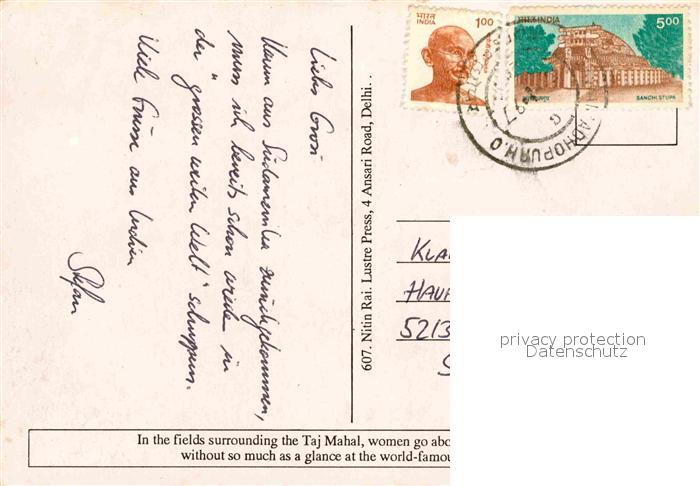 भारत
INDIA
1.00
भारत INDIA
5.00
SANCHI STUPA
MADHOPUR H.O
Liebe Grosi
Kaum aus Südamerika zurückgekommen,
muss ich bereits schon wieder in
der "grossen weiten Welt" schnuppern.
Viele Grüsse aus Indien
Stefan
607. Nitin Rai. Lustre Press, 4 Ansari Road, Delhi.
KLA
HAU
5213
S
privacy protection
Datenschutz
In the fields surrounding the Taj Mahal, women go abo
without so much as a glance at the world-famou